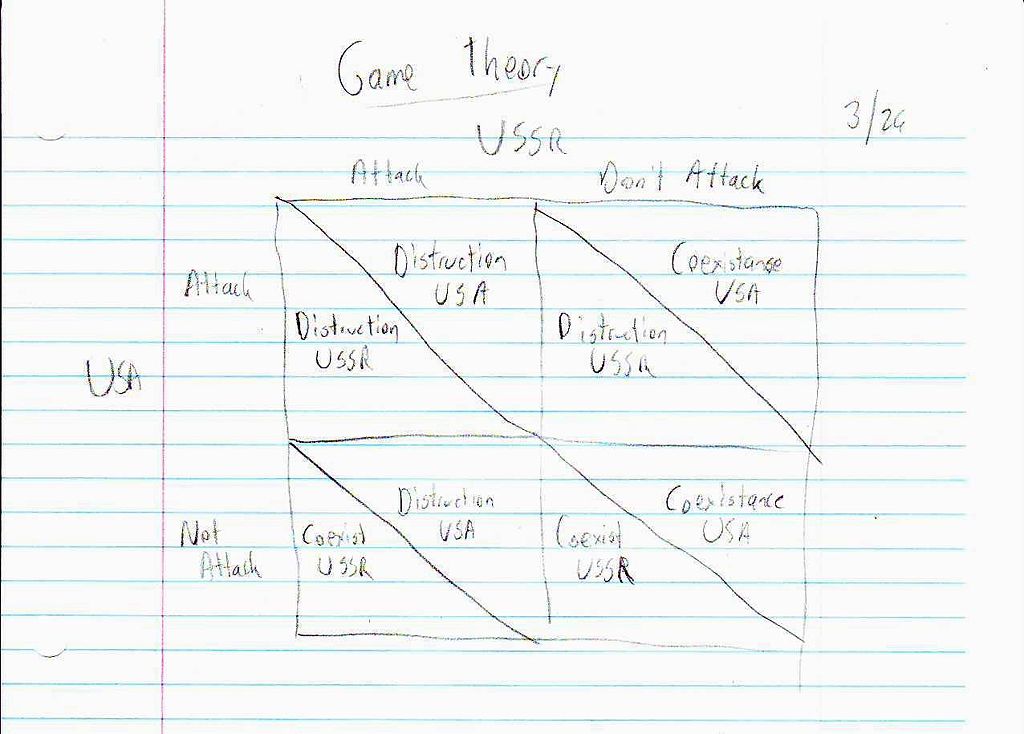 Game Theory
3/26
USSR
Attack Don't Attack
Attack
Distruction
USA
Distruction
USSR
Coexistanse
USA
Distruction
USSR
USA
Not
Attack
Distruction
USA
Coexist
USSR
Coexistance
USA
Coexist
USSR